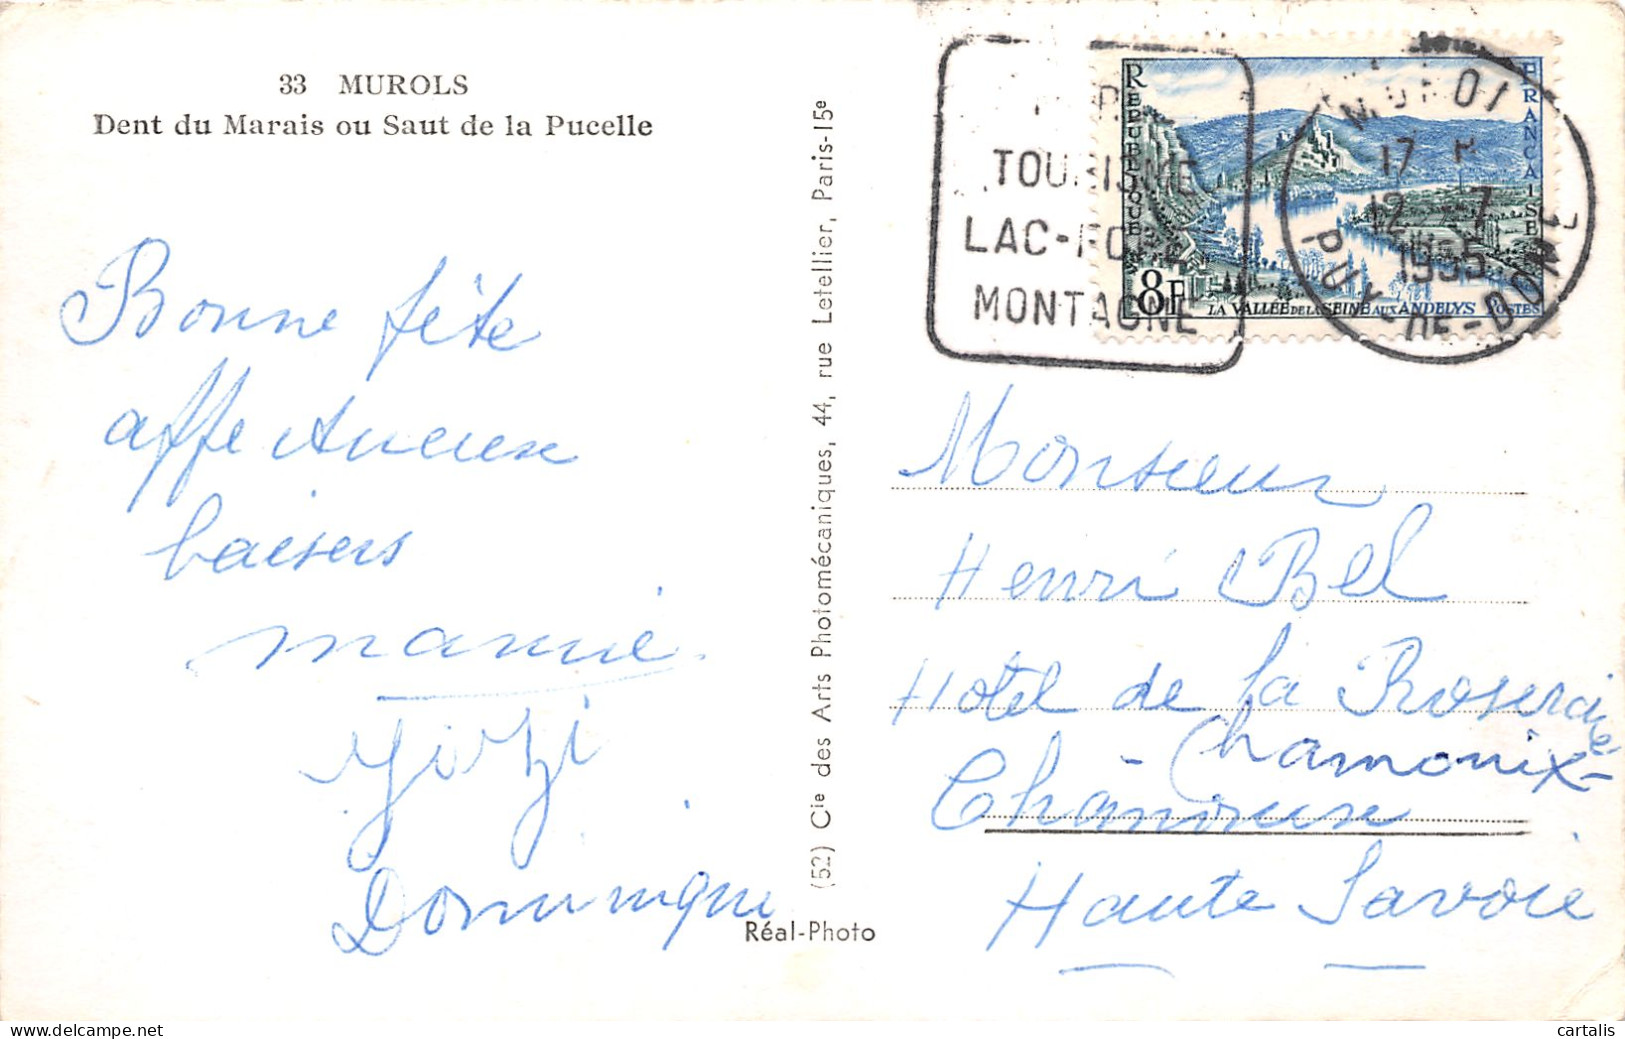 33 MUROLS
Dent du Marais ou Saut de la Pucelle
Bonne fête
affectueux
baisers
mamie
Dominique
(52) Cie des Arts Photomécaniques, 44, rue Letellier, Paris-15e
Réal-Photo
TOURISME
LAC-FORÊT
MONTAGNE
REPUBLIQUE
FRANÇAISE
8F
LA VALLÉE DE LA SEINE AUX ANDELYS POSTES
MUROL
17 H
12 - 7
1955
PUY-DE-DÔME
Monsieur
Henri Bel
Hotel de la Roseraie
- Chamonix -
Chamonix
Haute Savoie
cartalis